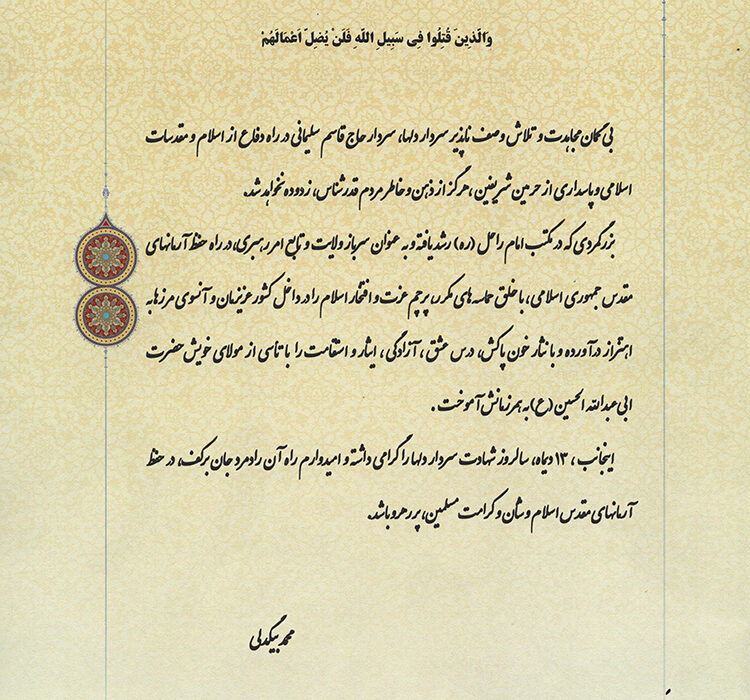 وَالَّذِینَ قُتِلُوا فِی سَبِیلِ اللَّهِ فَلَنْ یُضِلَّ أَعْمَالَهُمْ
بی گمان مجاهدت و تلاش وصف ناپذیر سردار دلها، سردار حاج قاسم سلیمانی در راه دفاع از اسلام و مقدسات
اسلامی و پاسداری از حرمین شریفین ، هرگز از ذهن و خاطر مردم قدرشناس، زدوده نخواهد شد.
بزرگمردی که در مکتب امام راحل (ره) رشد یافته و به عنوان سرباز ولایت و تابع امر رهبری، در راه حفظ آرمانهای
مقدس جمهوری اسلامی، با خلق حماسه های مکرر، پرچم عزت و افتخار اسلام را در داخل کشور عزیزمان و آنسوی مرزها به
اهتزاز درآورده و با نثار خون پاکش، درس عشق ، آزادگی ، ایثار و استقامت را با تاسی از مولای خویش حضرت
ابی عبدالله الحسین (ع) به همرزمانش آموخت .
اینجانب ، ۱۳ دیماه، سالروز شهادت سردار دلها را گرامی داشته و امیدوارم راه آن رادمرد جان برکف، در حفظ
آرمانهای مقدس اسلام و شأن و کرامت مسلمین، پر رهرو باشد.
محمد بیگدلی